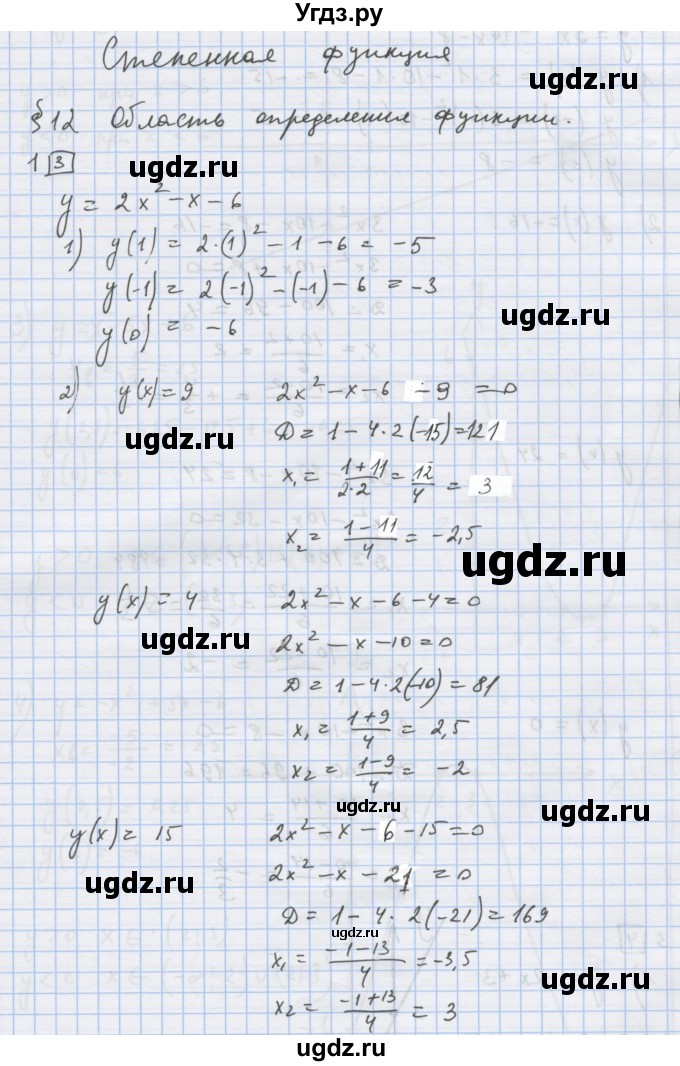 Угдз.ру
Степенная функция
§12 Область определения функции.
1 3
ugdz.ru
y = 2x² - x - 6
1) y(1) = 2·(1)² - 1 - 6 = -5
y(-1) = 2(-1)² - (-1) - 6 = -3
ugdz.ru
y(0) = -6
2) y(x) = 9 2x² - x - 6 - 9 = 0
ugdz.ru
D = 1 - 4·2(-15) = 121
x₁ = (1+11)/(2·2) = 12/4 = 3
x₂ = (1-11)/4 = -2,5
ugdz.ru
y(x) = 4 2x² - x - 6 - 4 = 0
ugdz.ru
2x² - x - 10 = 0
D = 1 - 4·2(-10) = 81
x₁ = (1+9)/4 = 2,5
x₂ = (1-9)/4 = -2
ugdz.ru
ugdz.ru
y(x) = 15 2x² - x - 6 - 15 = 0
ugdz.ru
2x² - x - 21 = 0
D = 1 - 4·2(-21) = 169
ugdz.ru
x₁ = (-1-13)/4 = -3,5
ugdz.ru
x₂ = (-1+13)/4 = 3
ugdz.ru